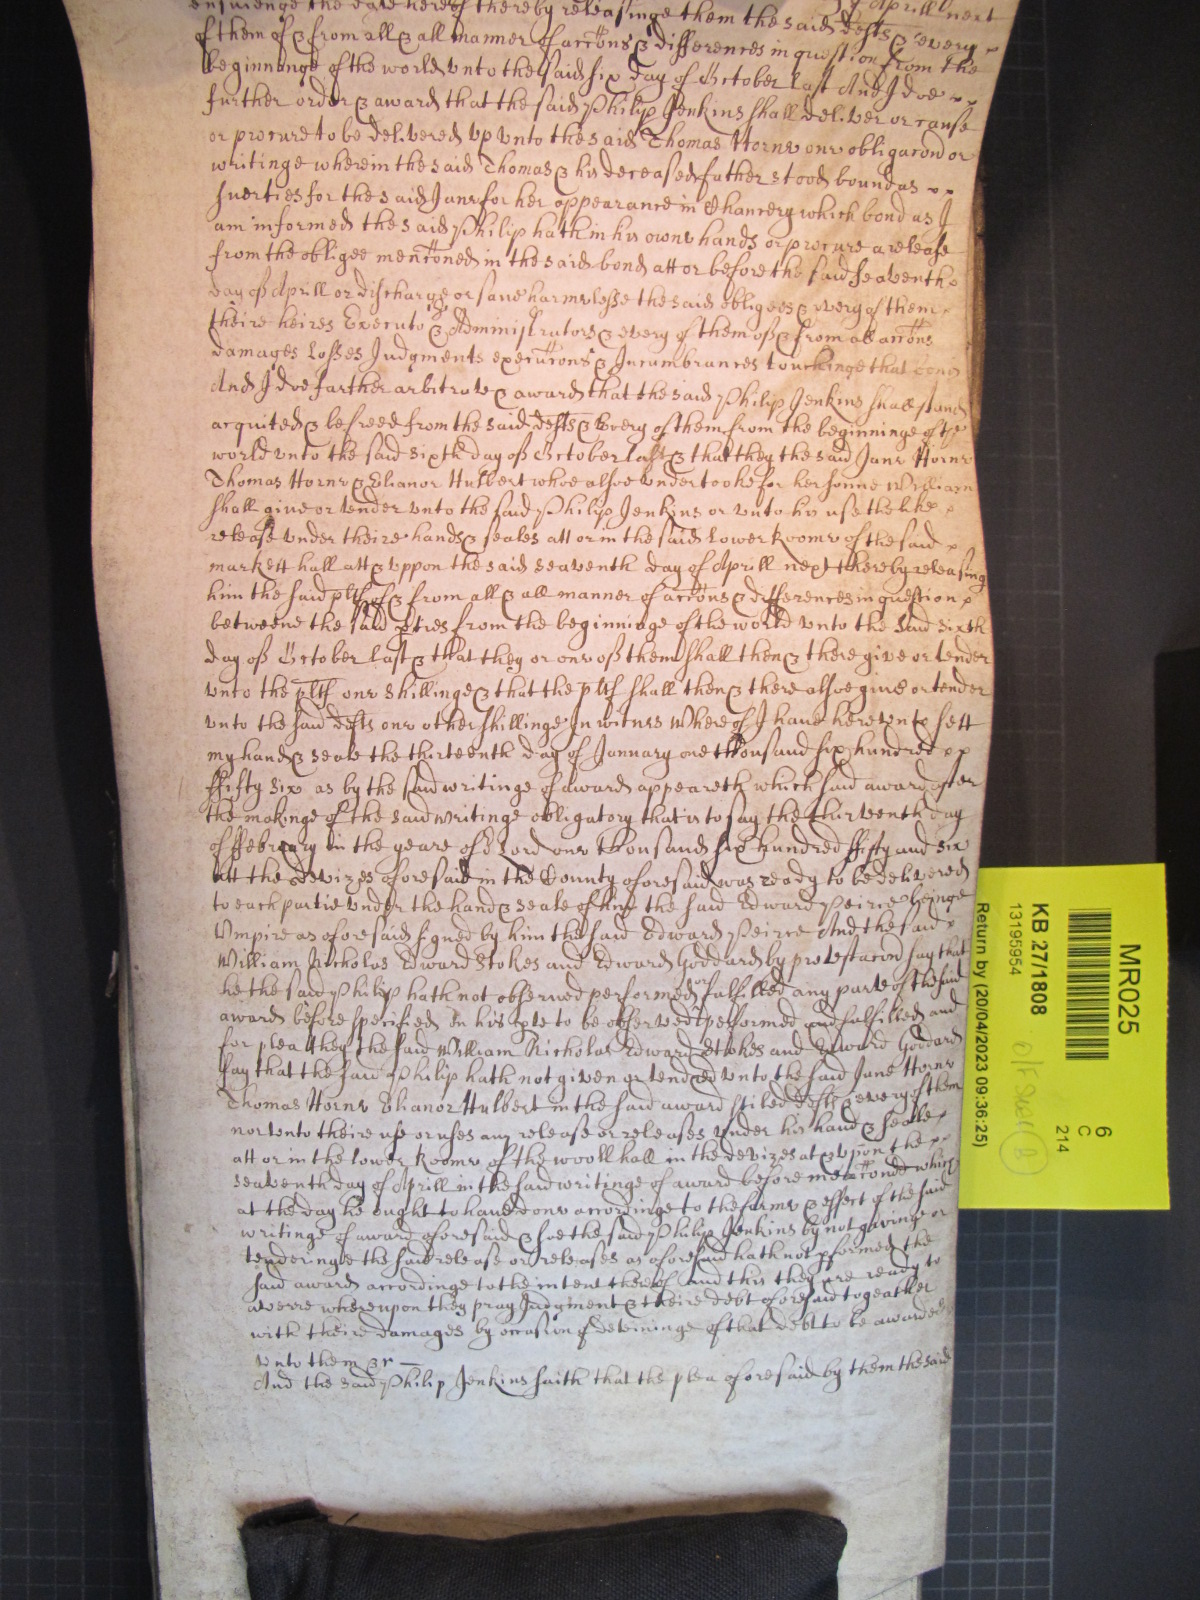 ensuienge the date hereof thereby releasinge them the said defts & every
of them of & from all & all manner of accons & differences in question from the
beginninge of the world vnto the said six day of October last And I doe
further order & award that the said Philip Jenkins shall deliver or cause
or procure to be delivered vp vnto the said Thomas Horne one obligacon or
writinge wherein the said Thomas & his deceased father stood bound as
suerties for the said Jane for her appearance in Chancery which bond as I
am informed the said Philip hath in his owne hands or procure a release
from the obligee menconed in the said bond att or before the said seaventh
day of Aprill or discharge or save harmelesse the said obligees & every of them
theire heires Executo & Administrators & every of them of & from all accons
damages Losses Judgments execucons & Incumbrances touchinge that
And I doe further arbitrate & award that the said Philip Jenkins shall stand
acquited & be freed from the said defts & Every of them from the beginninge of the
world vnto the said sixth day of October last & that they the said Jane Horne
Thomas Horne & Elianor Hulbert whoe alsoe vndertooke for her sonne William
shall give or tender vnto the said Philip Jenkins or vnto his use the like
release vnder theire hands & seales att or in the said Lower Roome of the said
markett hall att & vppon the said seaventh day of Aprill next thereby releasing
him the said pltf of & from all & all manner of accons & differences in question
betweene the said pties from the beginninge of the world vnto the said sixth
day of October last & that they or one of them shall then & there give or tender
vnto the pltf one shillinge & that the pltf shall then & there alsoe give or tender
vnto the said defts one other shillinge In witnes Whereof I have herevnto sett
my hand & seale the thirteenth day of January one thousand six hundred
ffifty six as by the said writinge of award appeareth which said award after
the makinge of the said writinge obligatory that is to say the day
of ffebruary in the yeare of Lord one thousand six hundred ffifty and six
att the devizes aforesaid in the County aforesaid was ready to be delivered
to each partie vnder the hand & seale of him the said Edward Peirce beinge
Vmpire as aforesaid signed by him the said Edward Peirce And the said
William Nicholas Edward Stokes and Edward Goddard by protestacon say that
he the said Philip hath not observed performed fulfilled any parte of the said
award before specified on his pte to be observed performed and fulfilled and
for plea they the said William Nicholas Edward Stokes and Edward Goddard
say that the said Philip hath not given or tendred vnto the said Jane Horne
Thomas Horne Elianor Hulbert in the said award stiled defts & every of them
nor vnto theire use or uses any release or releases vnder his hand & seale
att or in the lower Roome of the wooll hall in the devizes at & vpon the
seaventh day of Aprill in the said writinge of award before menconed which
at the day he ought to have done accordinge to the forme & effect of the said
writinge of award aforesaid & soe the said Philip Jenkins by not givinge or
tenderinge the said release or releases as aforesaid hath not pformed the
said award accordinge to the intent thereof and this they are ready to
averre wherevpon they pray Judgment & theire debt aforesaid togeather
with theire damages by occasion of deteininge of that debt to be awarded
vnto them &c
And the said Philip Jenkins saith that the plea aforesaid by them the said
MR025
6
C
214
KB 27/1808
13195954
Return by (20/04/2023 09:36:25)